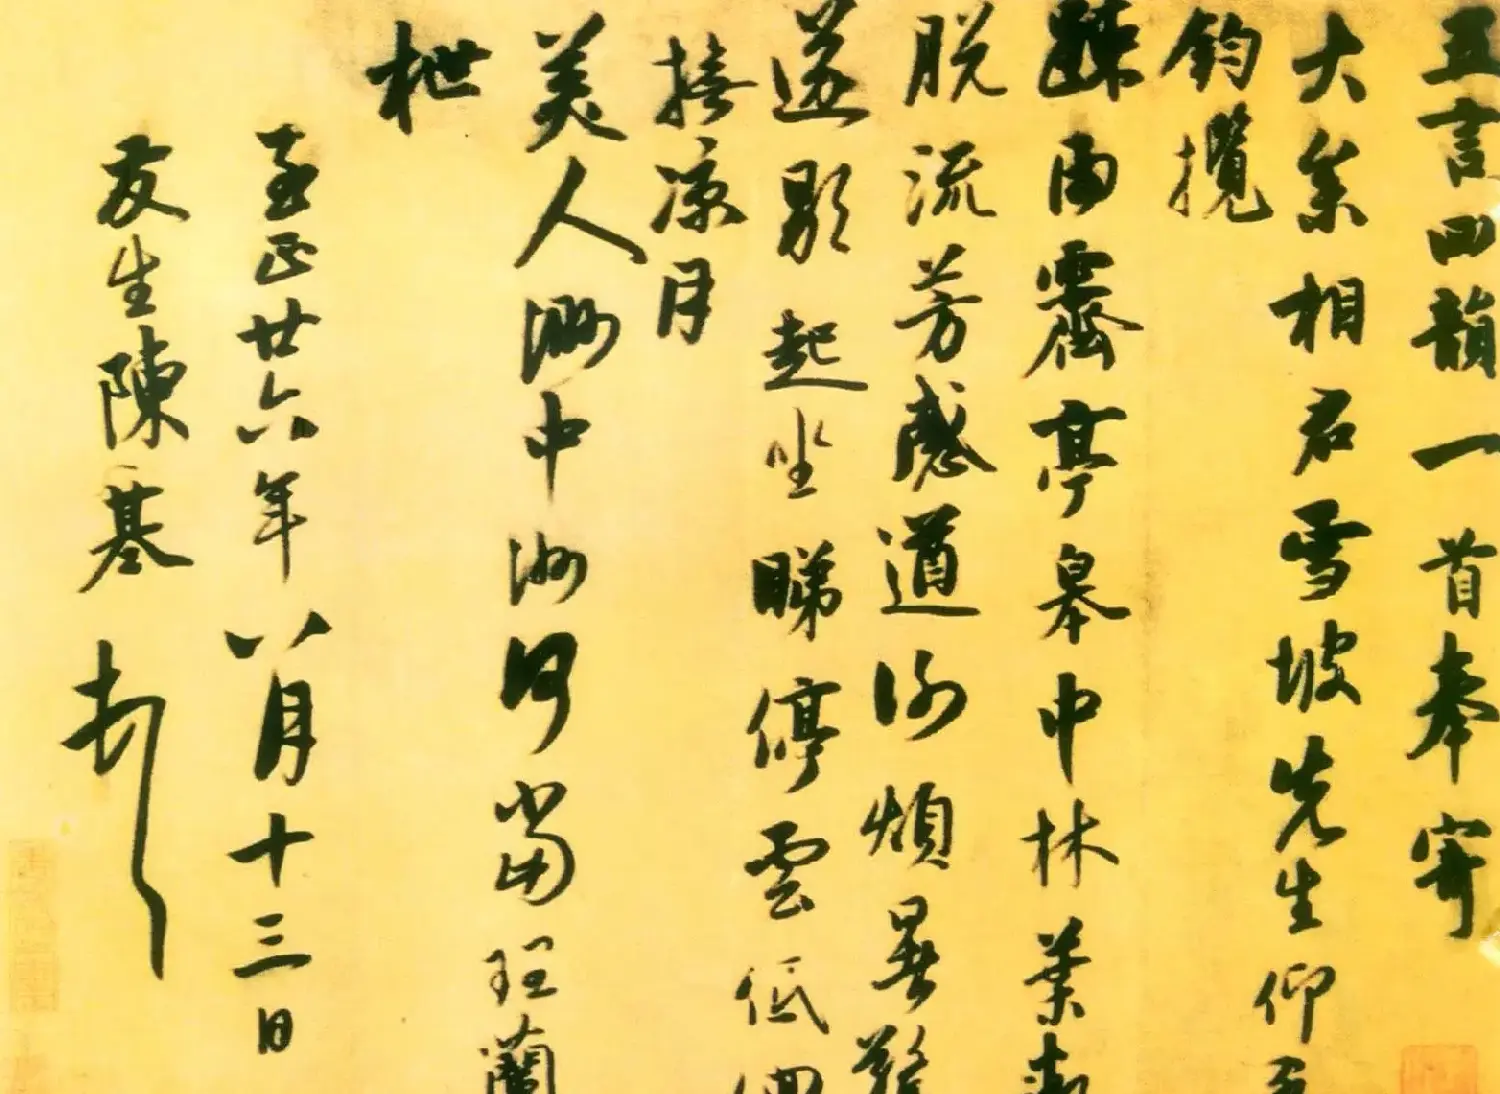 五言四韻一首奉寄
大參相君雪坡先生仰
鈞攬
踈雨霽亭皋中林葉
脫流芳感遒
煩暑
遂歇起坐睇停雲低
接凉月
美人渺中洲何當理蘭
枻
至正廿六年八月十三日
友生陳基